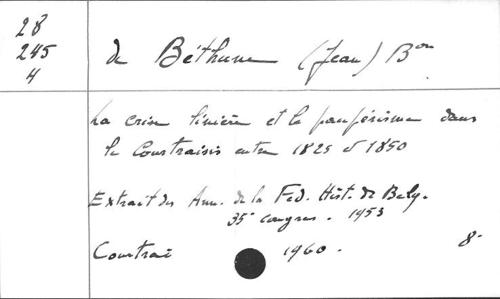 28
245
4
de Béthune (Jean) Bon
La crise linière et le paupérisme dans
le Courtraisis entre 1825 et 1850
Extrait des Ann. de la Fed. Hist. de Belg.
35e congres. 1953
Courtrai 1960. 8°